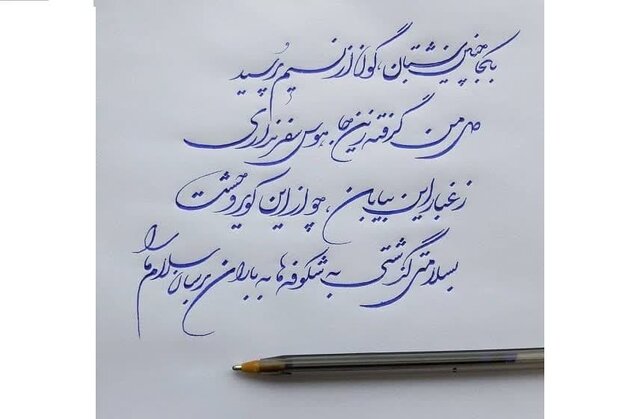 به کجا چنین شتابان، گون از نسیم پرسید
دل من گرفته زینجا، هوس سفر نداری
ز غبار این بیابان، چو از این کویر وحشت
بسلامتی گذشتی به شکوفه‌ها به باران برسان سلام ما را